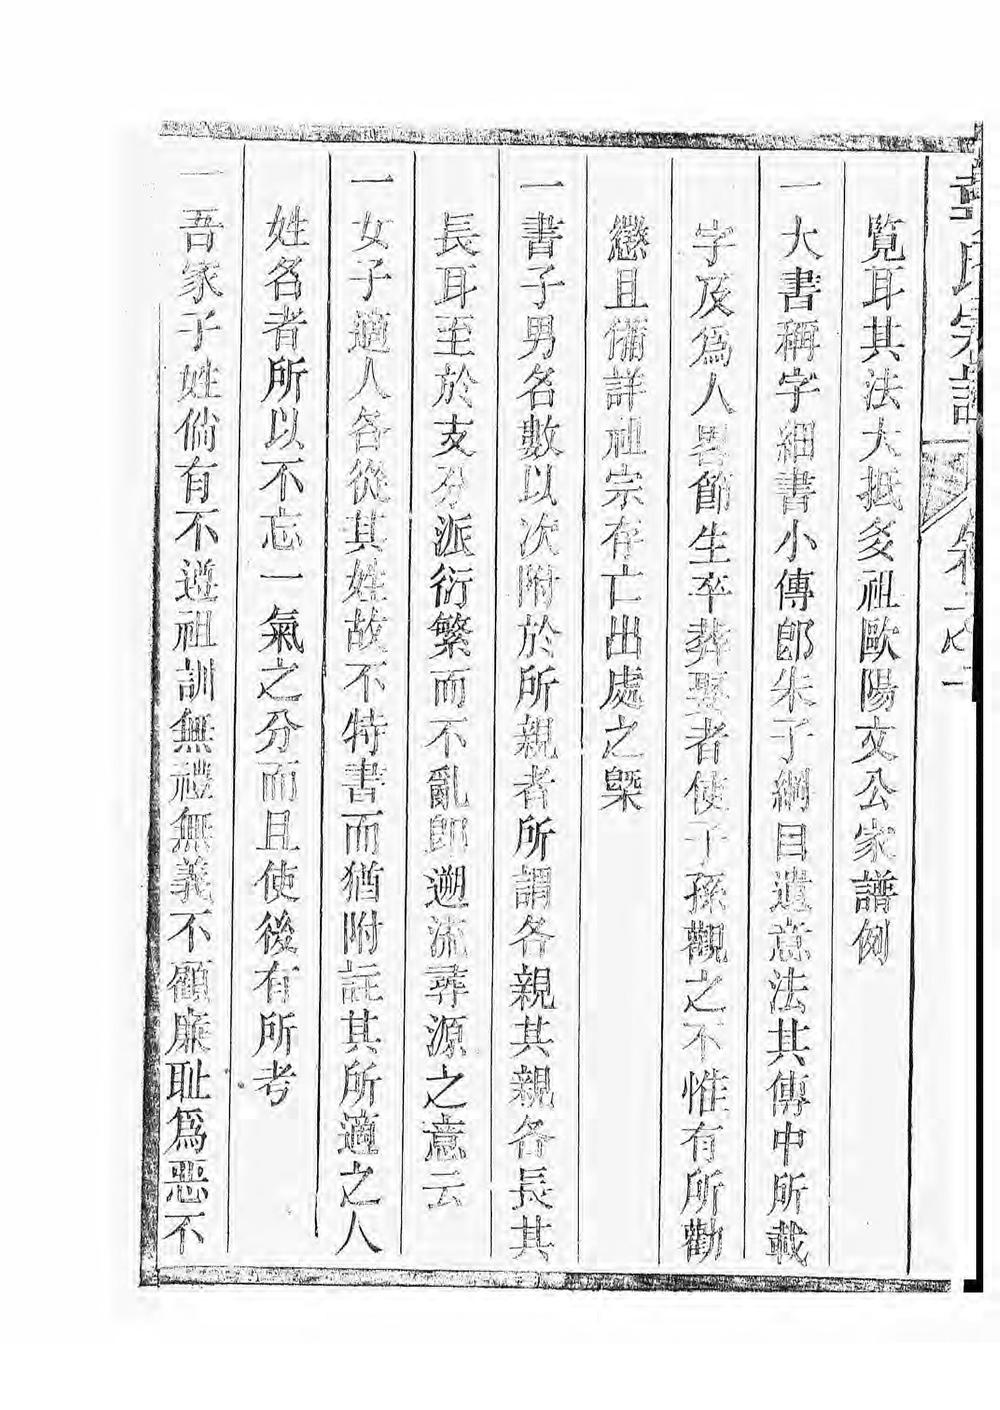 氏宗譜
覽耳其法大抵多祖歐陽文公家譜例
一大書稱字細書小傳卽朱子綱目遺意法其傳中所載
字及爲人畧節生卒葬娶者使子孫觀之不惟有所勸
懲且備詳祖宗存亡出處之槩
一書子男名數以次附於所親者所謂各親其親各長其
長耳至於支分派衍繁而不亂卽遡流尋源之意云
一女子適人各從其姓故不特書而猶附註其所適之人
姓名者所以不忘一氣之分而且使後有所考
一吾家子姓倘有不遵祖訓無禮無義不顧廉耻爲惡不